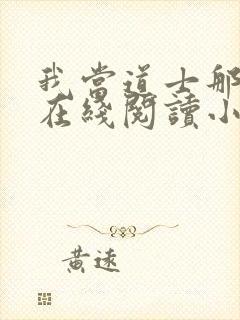 我當道士那
在綫閱讀小
黃遠